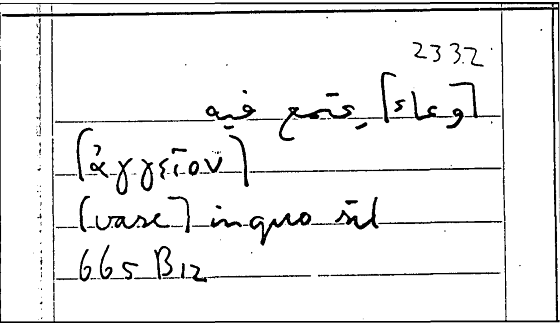 2332
[وعاء] يجتمع فيه
[ἀγγεῖον]
[vase] in quo sil
665 B12